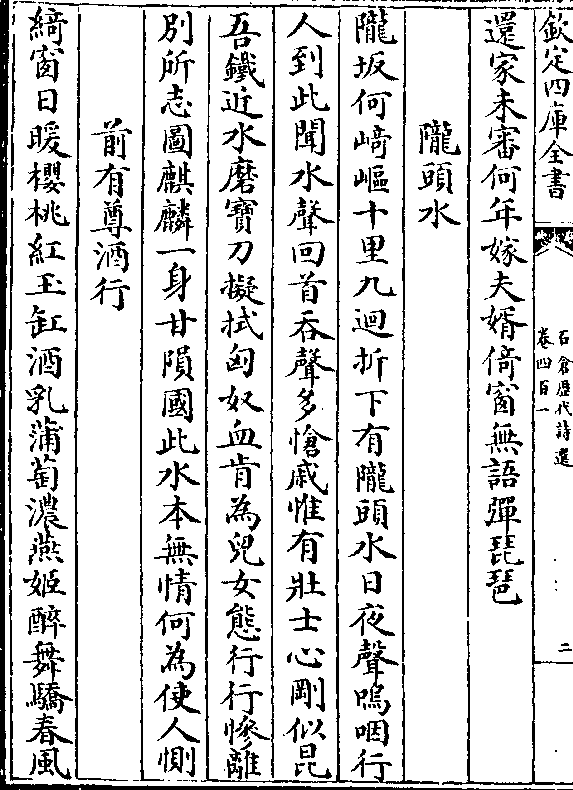 欽定四庫全書
石倉歷代詩選
卷四百一
二
還家未審何年嫁夫婿倚窗無語彈琵琶
隴頭水
隴坂何﨑嶇十里九迴折下有隴頭水日夜聲嗚咽行
人到此聞水聲回首吞聲多愴戚惟有壯士心剛似昆
吾鐵近水磨寶刀擬拭匈奴血肯為兒女態行行慘離
別所志圖麒麟一身甘隕國此水本無情何為使人惻
前有尊酒行
綺窗日暖櫻桃紅玉缸酒乳蒲萄濃燕姬醉舞驕春風